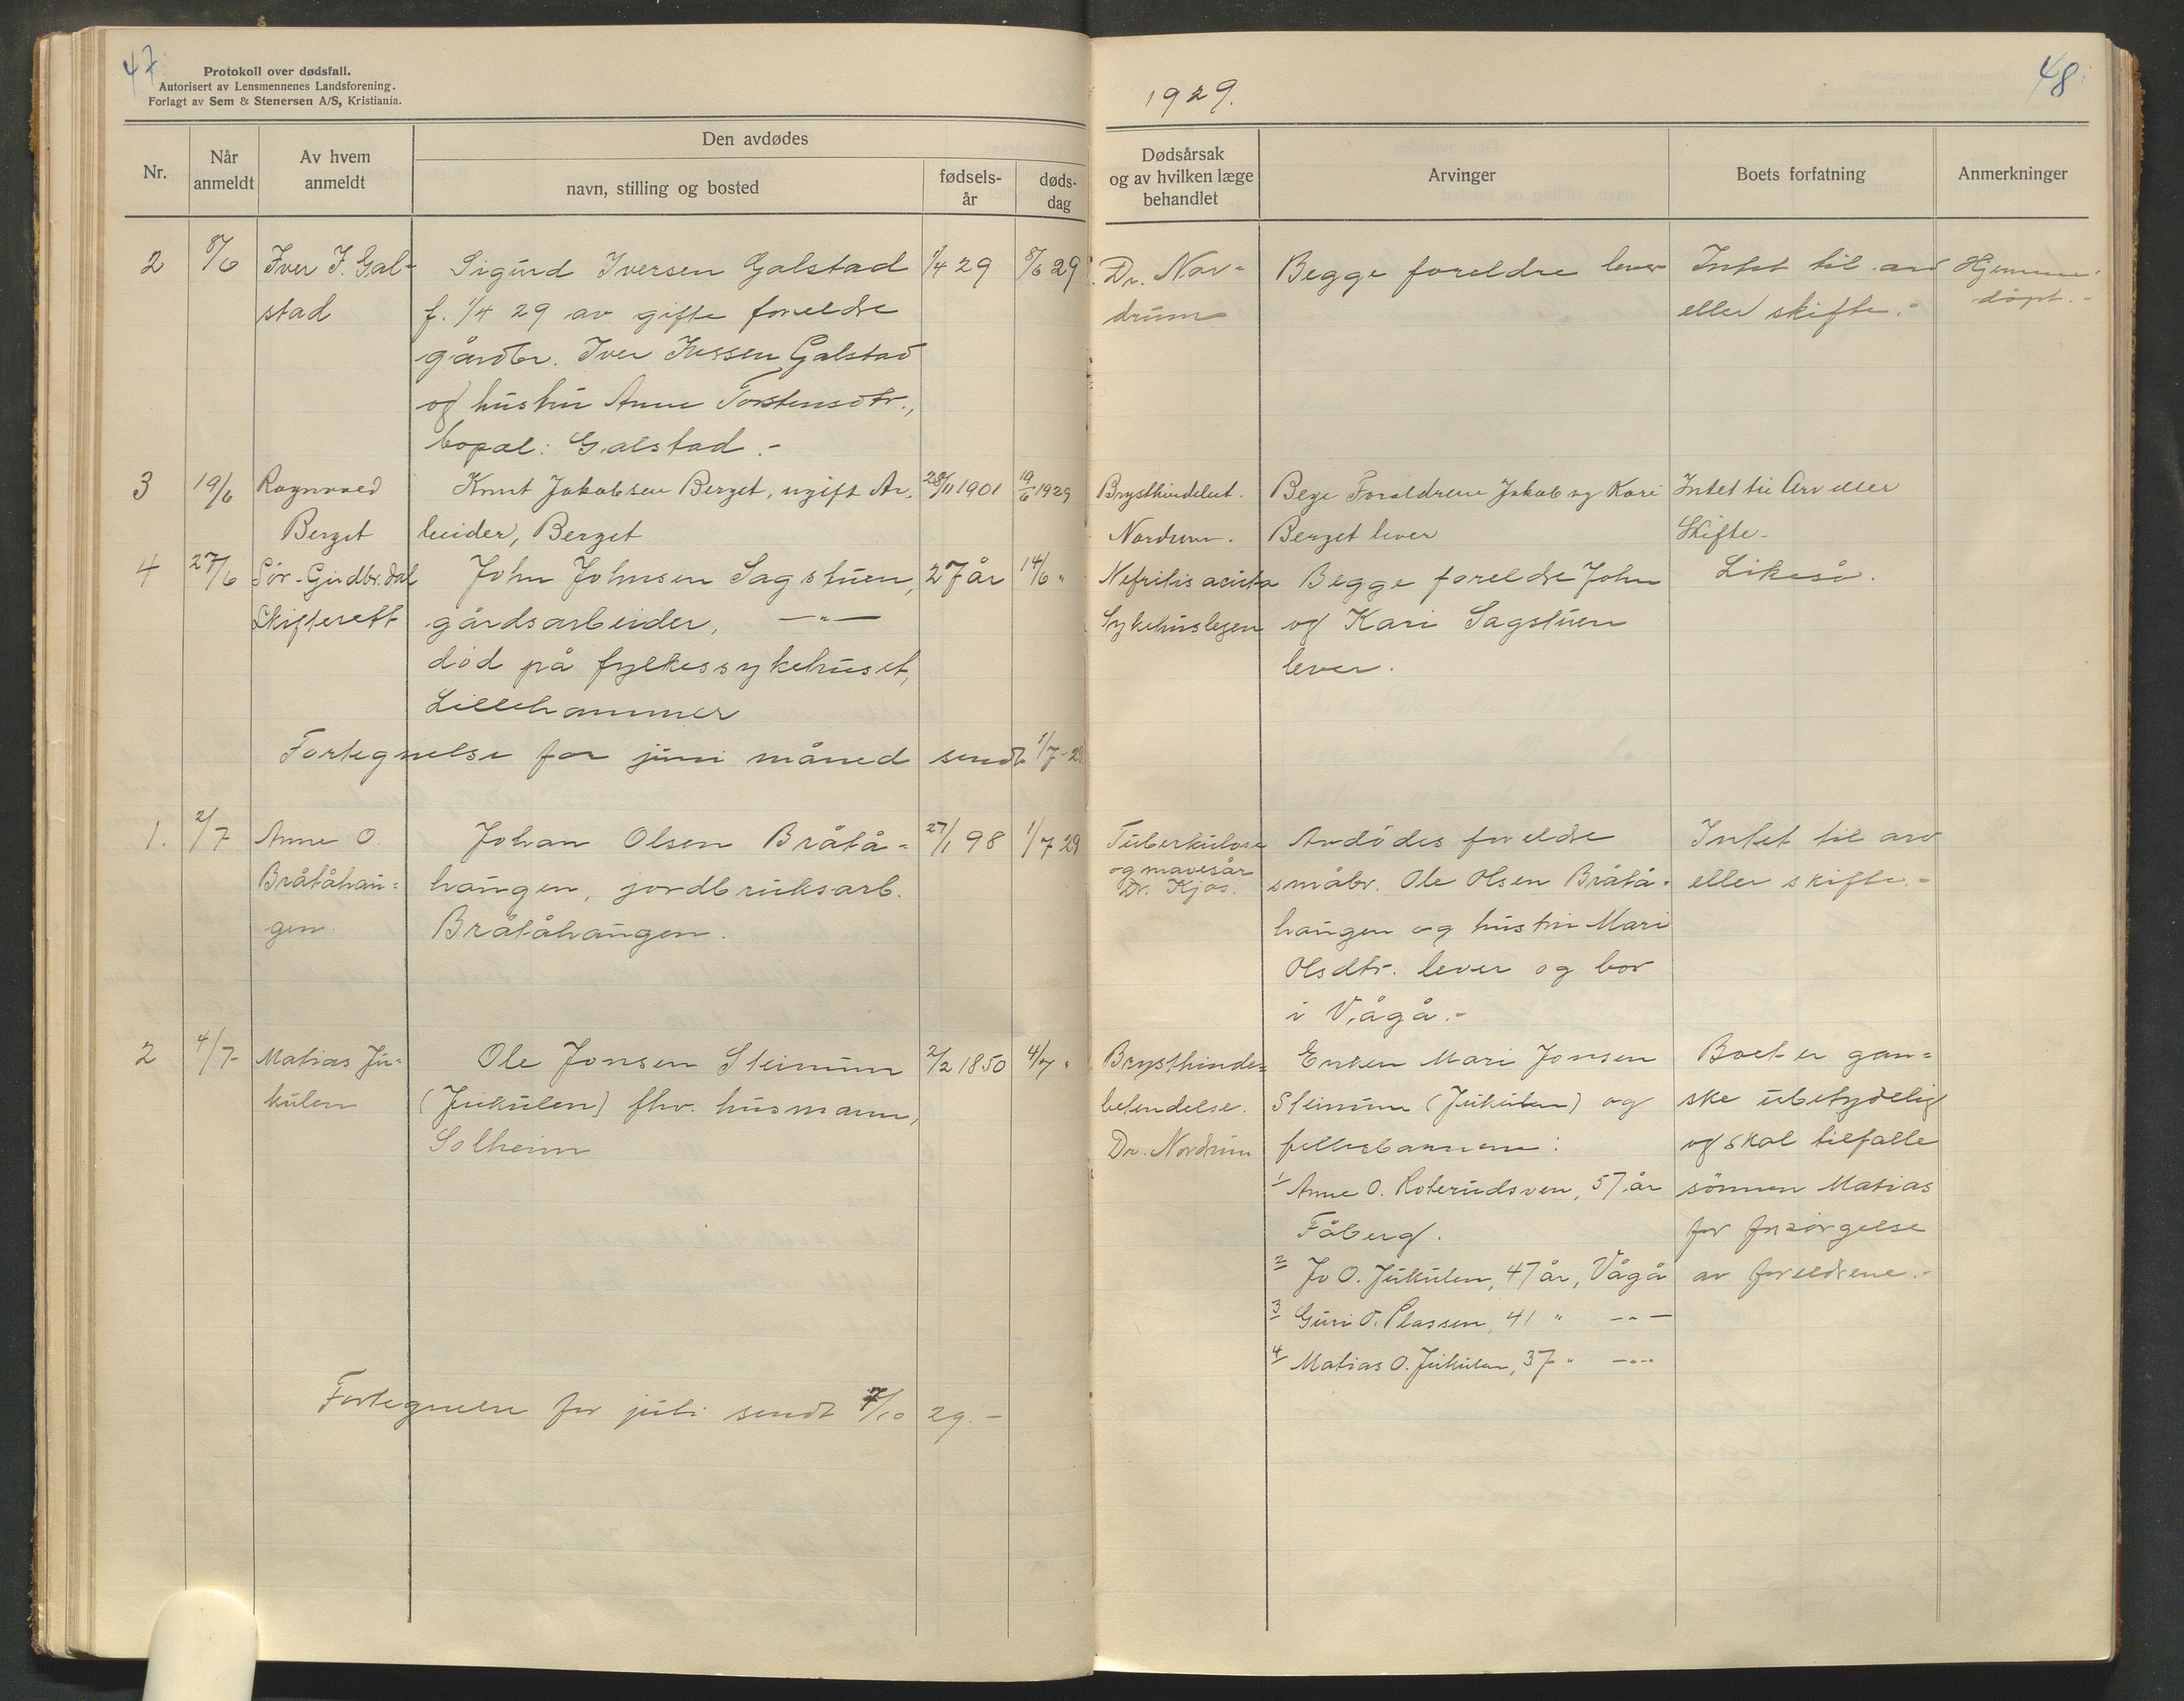 47
Protokoll over dødsfall.
Autorisert av Lensmennenes Landsforening.
Forlagt av Sem & Stenersen A/S, Kristiania.
Nr.
Når anmeldt
Av hvem anmeldt
Den avdødes
navn, stilling og bosted
fødsels-år
døds-dag
2 8/6 Iver I. Gal- Sigurd Iversen Galstad 1/4 29 8/6 29
stad f. 1/4 29 av gifte foreldre
gårdbr. Iver Galstad
og hustru Anne Torstensdtr.,
bopæl: Galstad.-
3 19/6 Ragnvald Knut Jakobsen Berget, ugift Ar- 28/11 1901 19/6 1929
Berget beider, Berget
4 27/6 Sør-Gudbr.dal John Johnsen Sagstuen, 27 år 14/6 "
Skifterett gårdsarbeider, —"—
død på fylkessykehuset,
Lillehammer
Fortegnelse for juni måned sendt 1/7-29
1. 2/7 Anne O. Johan Olsen Bråtå- 27/1 98 1/7 29
Bråtåhau- haugen, jordbruksarb.
gen. Bråtåhaugen.
2 4/7- Matias Ju- Ole Jonsen Steinum 2/2 1850 4/7 "
kulen (Jukulen) fhv. husmann,
Solheim
Fortegnelse for juli sendt 7/10 29.-
1929.
48
Dødsårsak og av hvilken læge behandlet
Arvinger
Boets forfatning
Anmerkninger
Dr. Nor- Begge foreldre lever Intet til arv Hjemme-
drum eller skifte.- døpt.-
Brysthindebet. Begge Forældrene Jakob og Kari Intet til Arv eller
Nordrum. Berget lever Skifte-
Nefritis acuta Begge foreldre John Likeså.
Sykehuslegen og Kari Sagstuen
lever.
Tuberkulose Avdødes foreldre Intet til arv
og mavesår småbr. Ole Olsen Bråtå- eller skifte.-
Dr. Kjos.
haugen og hustru Mari
Olsdtr. lever og bor
i Vågå.-
Brysthinde- Enken Mari Jonsen Boet er gan-
betendelse. Steinum (Jukulen) og ske ubetydelig
Dr. Nordrum fellesbarnene: og skal tilfalle
1/ Anne O. Roterudsven, 57 år sønnen Matias
Fåberg. for forsørgelse
2 Jo O. Jukulen, 47 år, Vågå av foreldrene.-
3 Guri O. Plassen, 41 " —"—
4/ Matias O. Jukulen, 37 " —"—